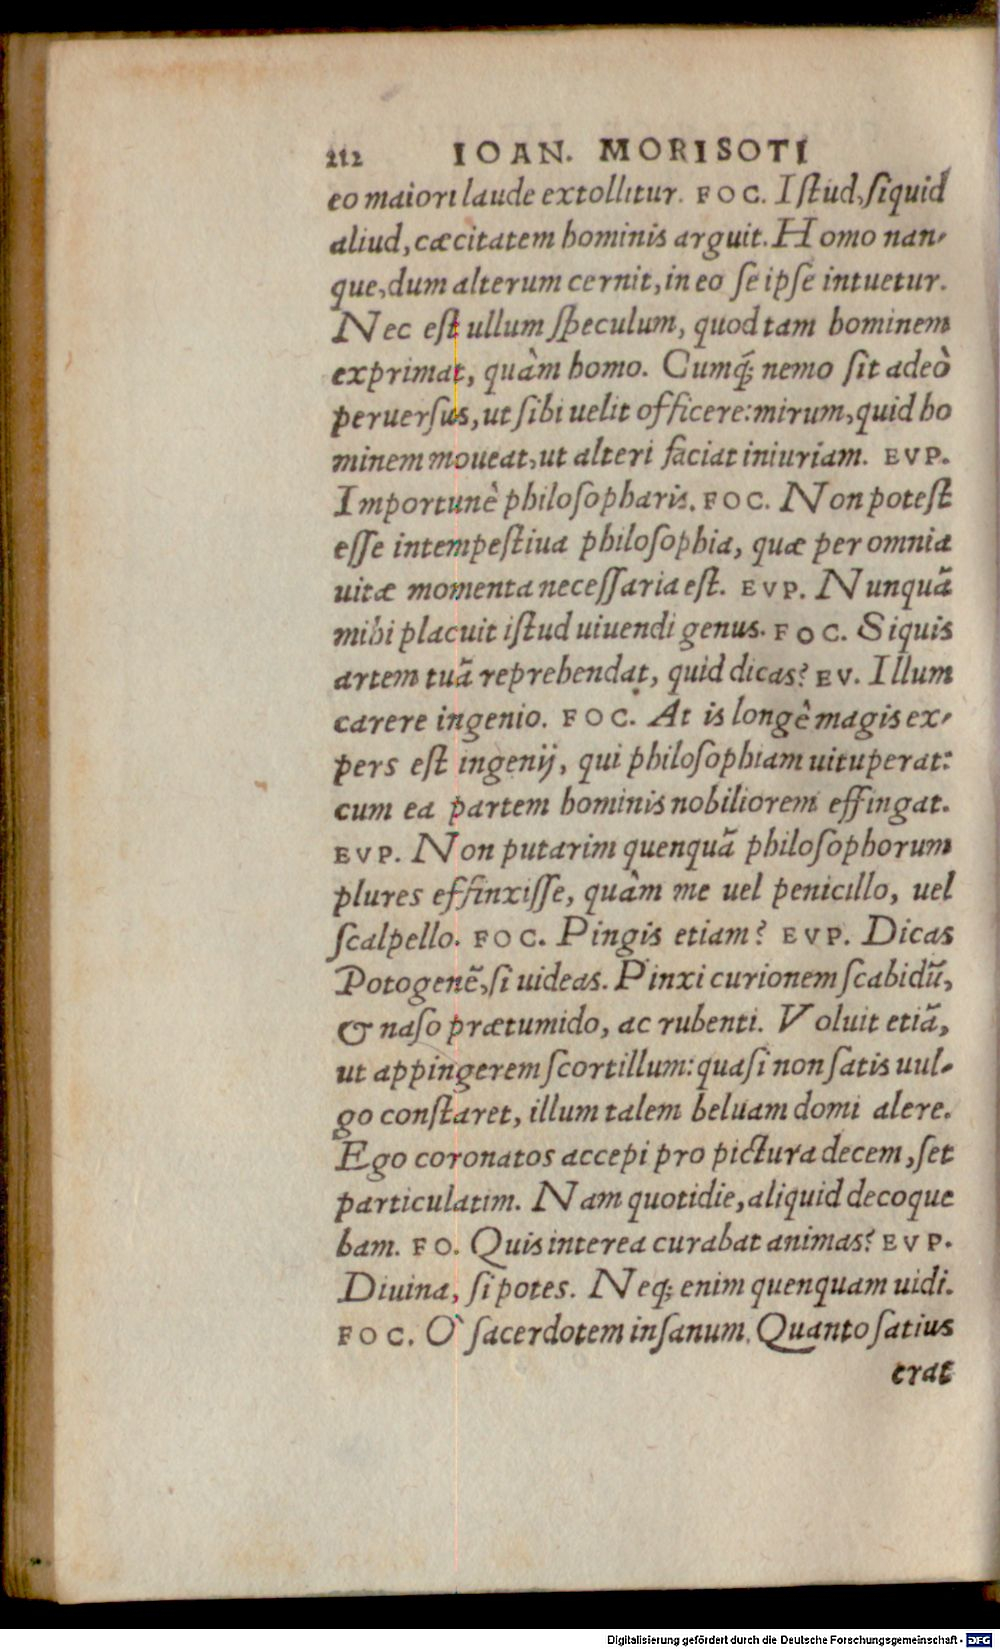 212 IOAN. MORISOTI
eo maiori laude extollitur. FOC. Istud, siquid
aliud, cæcitatem hominis arguit. Homo nan-
que, dum alterum cernit, in eo se ipse intuetur.
Nec est ullum speculum, quod tam hominem
exprimat, quàm homo. Cumq́; nemo sit adeò
peruersus, ut sibi uelit officere: mirum, quid ho
minem moueat, ut alteri faciat iniuriam. EVP.
Importunè philosopharis. FOC. Non potest
esse intempestiua philosophia, quæ per omnia
uitæ momenta necessaria est. EVP. Nunquã
mihi placuit istud uiuendi genus. FOC. Siquis
artem tuã reprehendat, quid dicas? EV. Illum
carere ingenio. FOC. At is longè magis ex-
pers est ingenij, qui philosophiam uituperat:
cum ea partem hominis nobiliorem effingat.
EVP. Non putarim quenquã philosophorum
plures effinxisse, quàm me uel penicillo, uel
scalpello. FOC. Pingis etiam? EVP. Dicas
Potogenẽ, si uideas. Pinxi curionem scabidũ,
& naso prætumido, ac rubenti. Voluit etiã,
ut appingerem scortillum: quasi non satis uul-
go constaret, illum talem beluam domi alere.
Ego coronatos accepi pro pictura decem, set
particulatim. Nam quotidie, aliquid decoque
bam. FO. Quis interea curabat animas? EVP.
Diuina, si potes. Neq; enim quenquam uidi.
FOC. Ò sacerdotem insanum. Quanto satius
erat
Digitalisierung gefördert durch die Deutsche Forschungsgemeinschaft - DFG